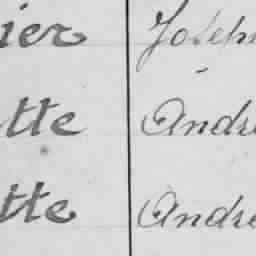 ier Joseph
tte André
tte André